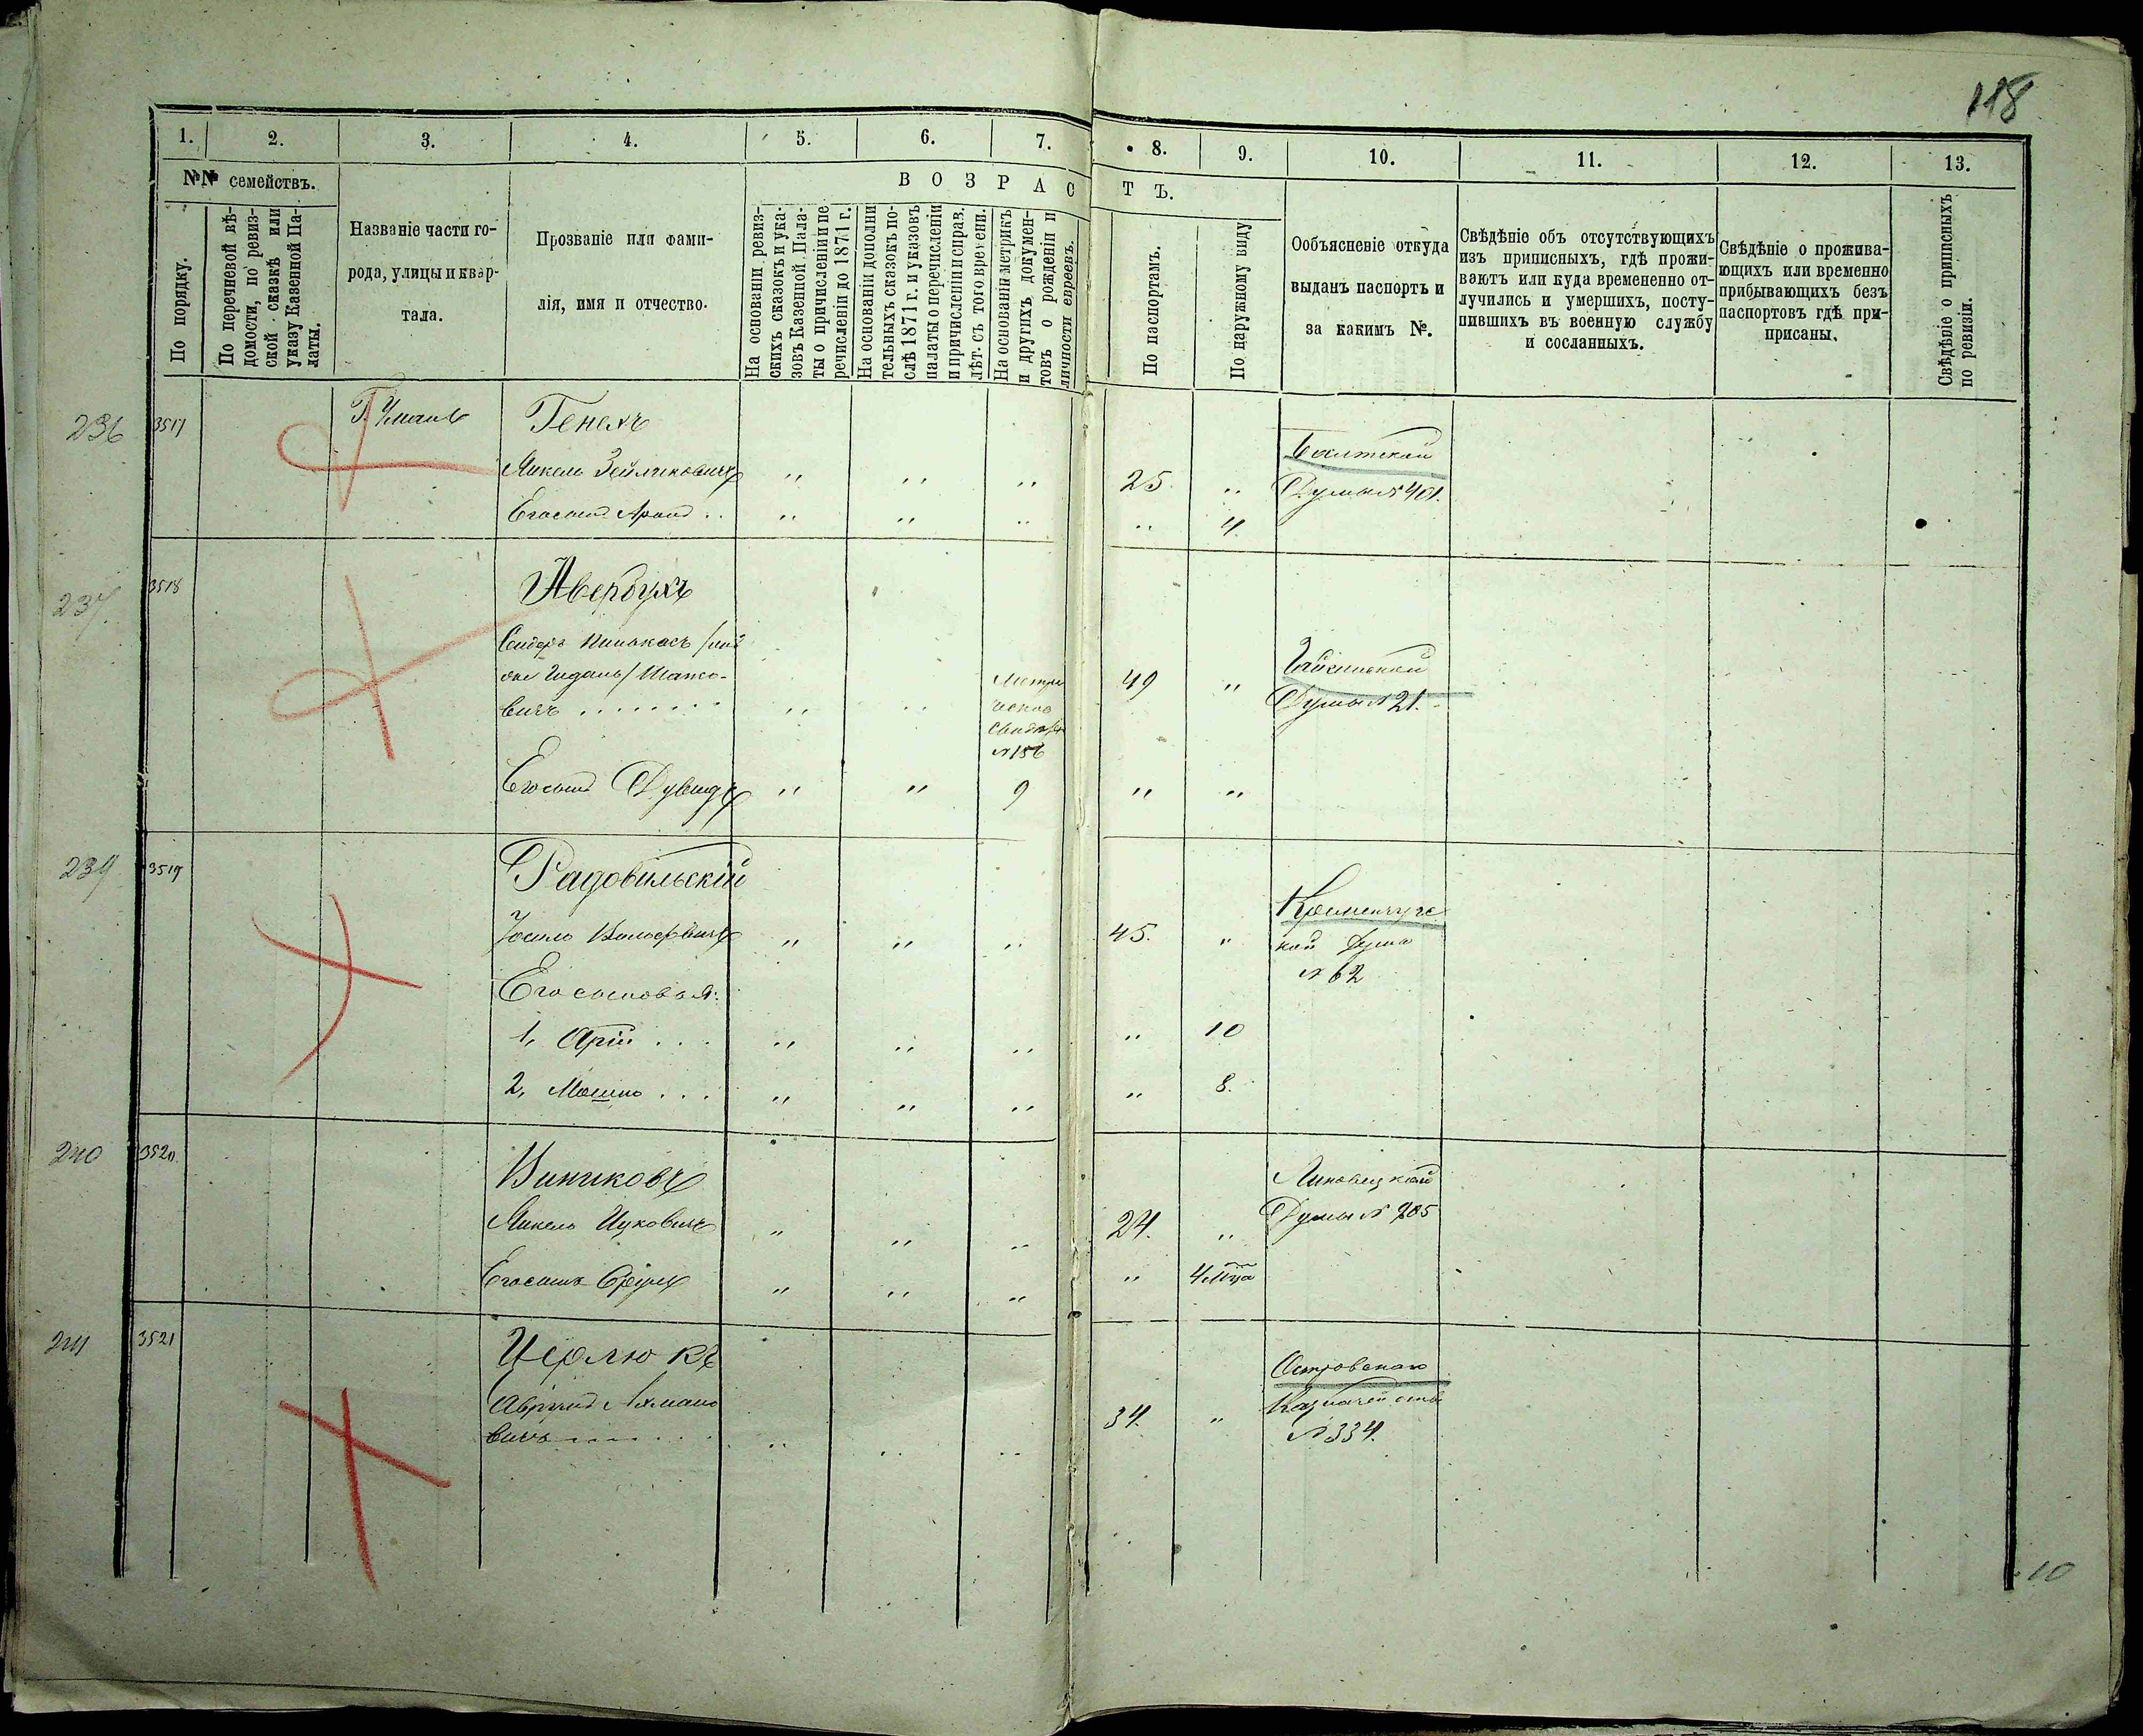 118
1.
2.
3.
4.
5.
6.
7.
8.
9.
10.
11.
12.
13.
№№ семействъ.
ВОЗРАС
ТЪ.
По порядку.
По перечневой вѣ-
домости, по ревиз-
ской сказкѣ или
указу Казенной Па-
латы.
Названіе части го-
рода, улицы и квар-
тала.
Прозваніе или фами-
лія, имя и отчество.
На основаніи ревиз-
скихъ сказокъ и ука-
зовъ Казенной Пала-
ты о причисленіи и пе
речисленіи до 1871 г.
На основаніи дополни
тельныхъ сказокъ по-
слѣ 1871 г. и указовъ
палаты о перечисленіи
и причисленіи и справ.
лѣт. съ того времени.
На основаніи метрикъ
и другихъ докумен-
товъ о рожденіи и
личности евреевъ.
По паспортамъ.
По наружному виду
Ообъясненіе откуда
выданъ паспортъ и
за какимъ №.
Свѣдѣніе объ отсутствующихъ
изъ приписныхъ, гдѣ прожи-
ваютъ или куда времененно от-
лучились и умершихъ, посту-
пившихъ въ военную службу
и сосланныхъ.
Свѣдѣніе о прожива-
ющихъ или временно
прибывающихъ безъ
паспортовъ гдѣ при-
присаны.
Свѣдѣніе о приписныхъ
по ревизіи.
236 3517 Г. Умань Генехъ
Балтской
Янкель Зейликовичъ " " " 25 "
Думы № 401.
Его сынъ Аронъ .. " " " " 4
237. 3518 Авербухъ
Пинкасъ
Метри
ческое
49 "
Думы № 21.
вичъ . . . . . . . " "
№ 156
Его сынъ Дувидъ " " 9 " "
239 3519 Радовильскій
Кременчугс
Іосиль Вольфовичъ " " " 45. "
кой Думы
№ 62
Его сыновья:
1, Арій . . . " " " " 10
2, Мошко . . . " " " " 8.
240 3520 Винниковъ
Липовецкой
Янкель Ицковичъ " " " 24. "
Думы № 205
Его сынъ Сруль " " " " 4 мца
241 3521 Церлюкъ
Островскаго
Аврумъ Лхмано
Казначейства
34. "
вичъ . . . . . " " "
№ 334.
10